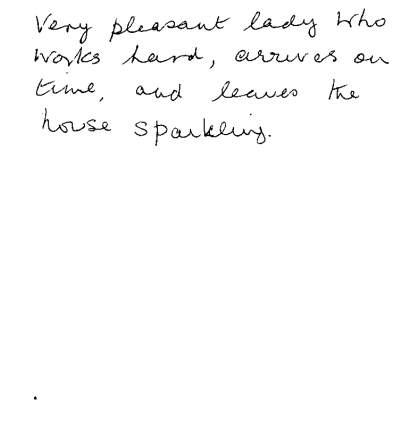 Very pleasant lady who
works hard, arrives on
time, and leaves the
house sparkling.